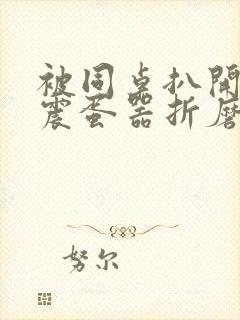 被同桌扒開
震蛋器折磨
努尔